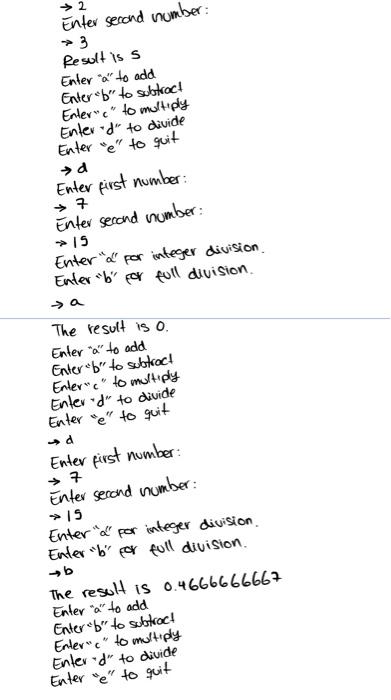 → 2
Enter second number:
→ 3
Result is 5
Enter "a" to add
Enter "b" to subtract
Enter "c" to multiply
Enter "d" to divide
Enter "e" to quit
→ d
Enter first number:
→ 7
Enter second number:
→ 15
Enter "a" for integer division.
Enter "b" for full division.
→ a
The result is 0.
Enter "a" to add
Enter "b" to subtract
Enter "c" to multiply
Enter "d" to divide
Enter "e" to quit
→ d
Enter first number:
→ 7
Enter second number:
→ 15
Enter "a" for integer division.
Enter "b" for full division.
→ b
The result is 0.4666666667
Enter "a" to add
Enter "b" to subtract
Enter "c" to multiply
Enter "d" to divide
Enter "e" to quit